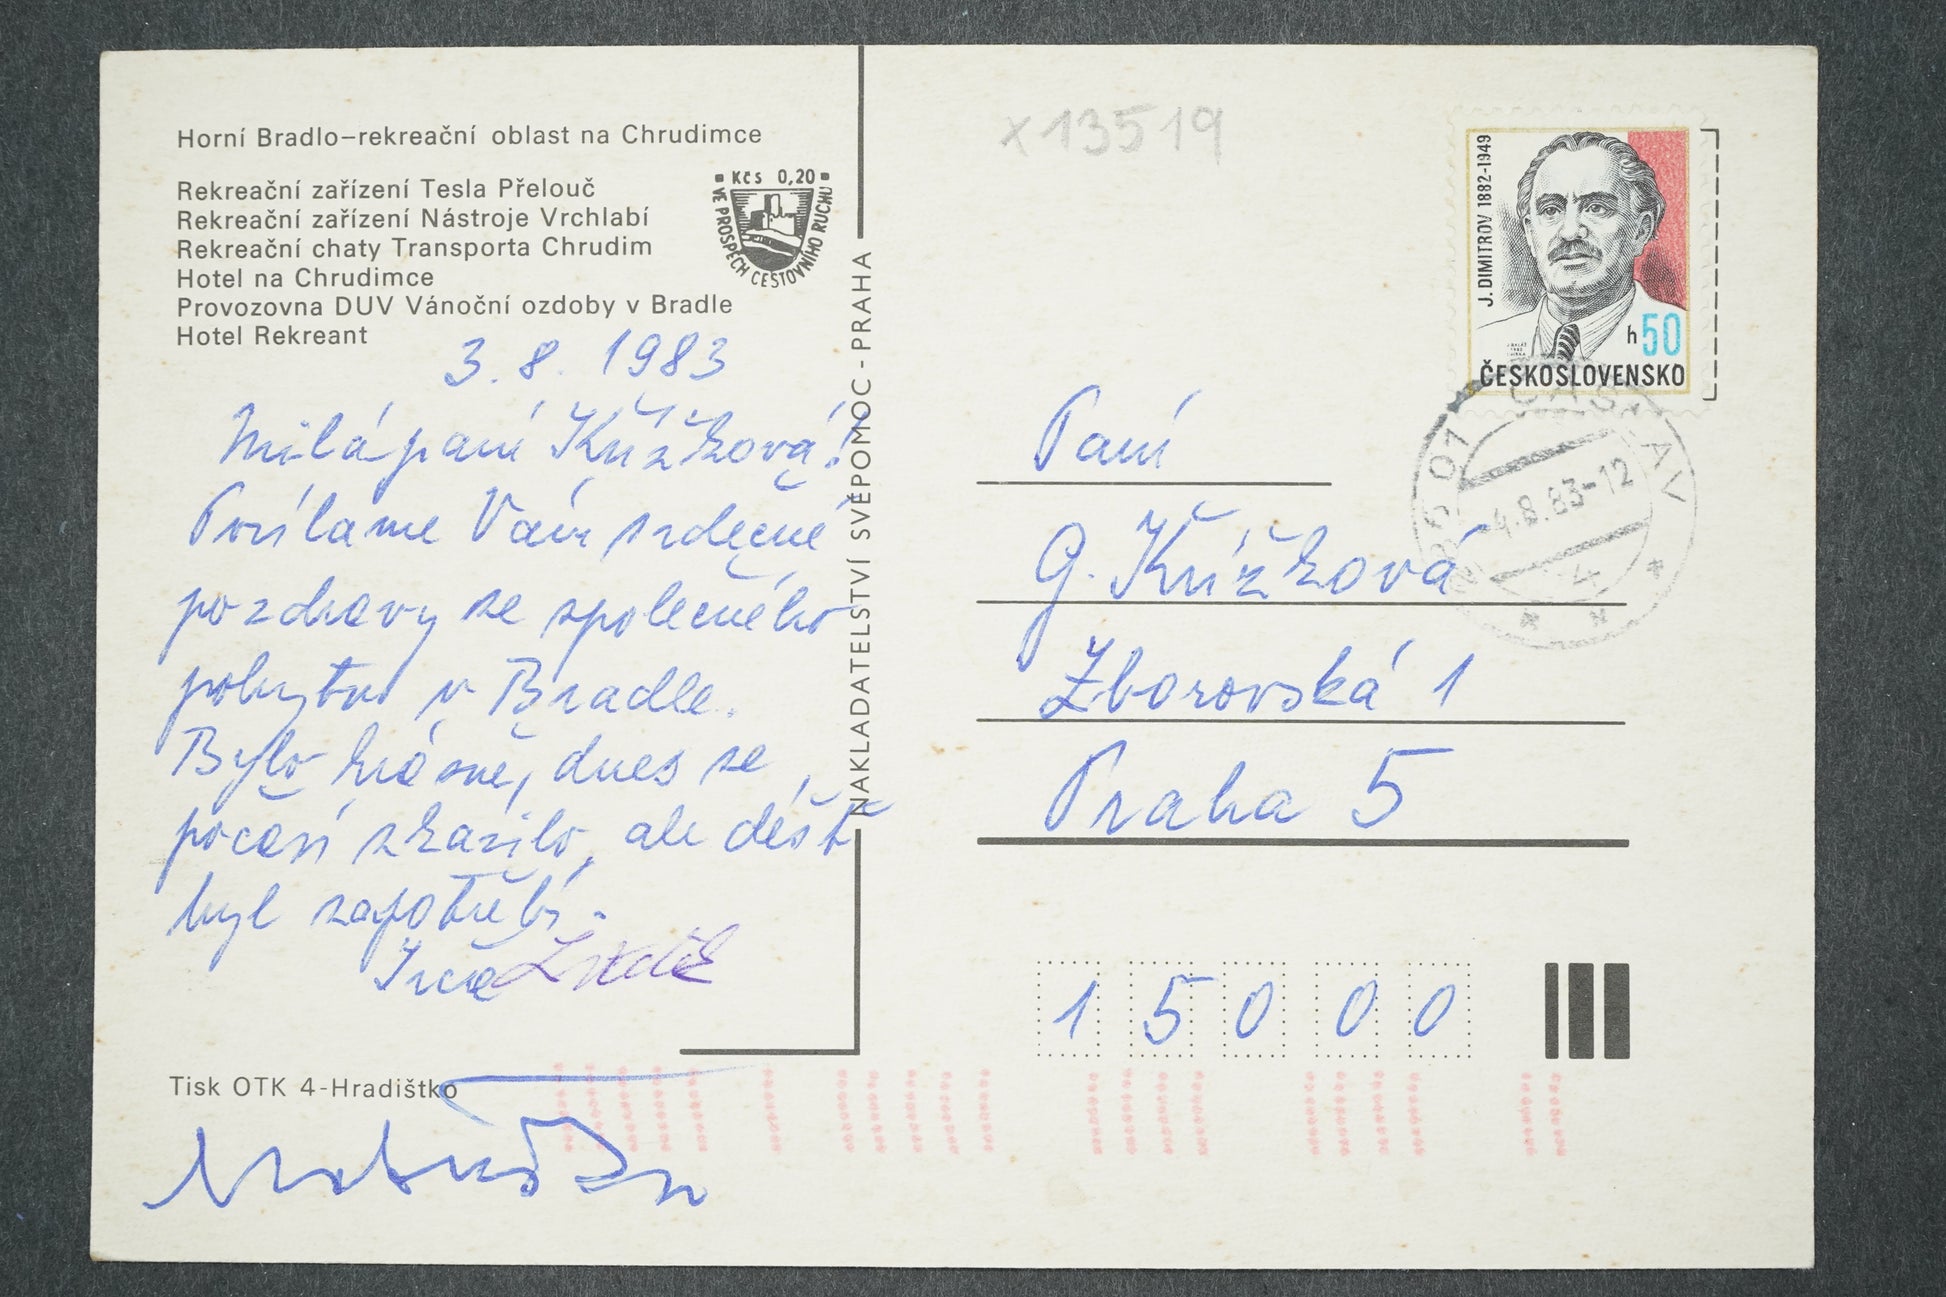 Horní Bradlo–rekreační oblast na Chrudimce
Rekreační zařízení Tesla Přelouč
Rekreační zařízení Nástroje Vrchlabí
Rekreační chaty Transporta Chrudim
Hotel na Chrudimce
Provozovna DUV Vánoční ozdoby v Bradle
Hotel Rekreant
Kčs 0,20
VE PROSPĚCH CESTOVNÍHO RUCHU
3. 8. 1983
Milá paní Křížková!
Posíláme Vám srdečné
pozdravy ze společného
pobytu v Bradle.
Bylo krásně, dnes se
počasí zkazilo, ale déšť
byl zapotřebí.
Tisk OTK 4-Hradištko
NAKLADATELSTVÍ SVÉPOMOC - PRAHA
x 13519
J. DIMITROV 1882-1949
h 50
ČESKOSLOVENSKO
ČÁSLAV
4.8.83-12
Paní
G. Křížková
Zborovská 1
Praha 5
15000